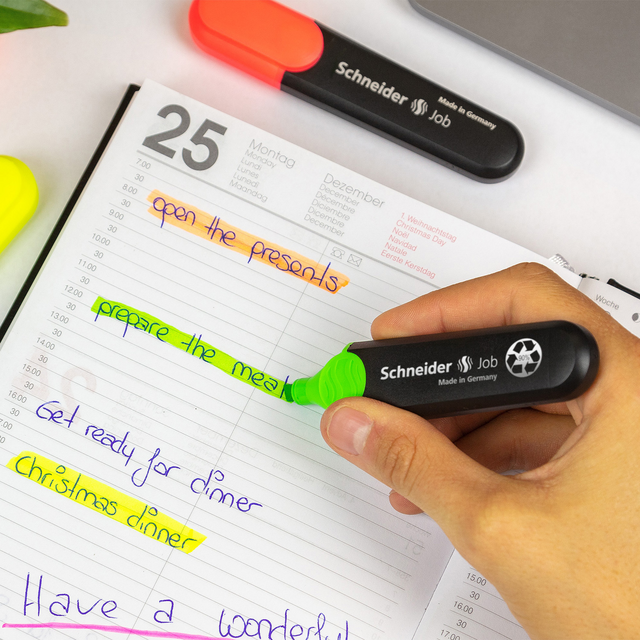 Schneider Job
Made in Germany
25
Montag
Monday
Lundi
Lunes
Lunedì
Maandag
Dezember
December
Décembre
Diciembre
Dicembre
December
1. Weihnachtstag
Christmas Day
Noël
Navidad
Natale
Eerste Kerstdag
Woche
7.00
30
8.00
30
9.00
open the presents
30
10.00
30
11.00
30
12.00
prepare the meal
30
13.00
30
14.00
30
15.00
30
16.00
Get ready for dinner
30
Christmas dinner
Have a wonderful
Schneider Job
Made in Germany
15.00
30
16.00
30
17.00